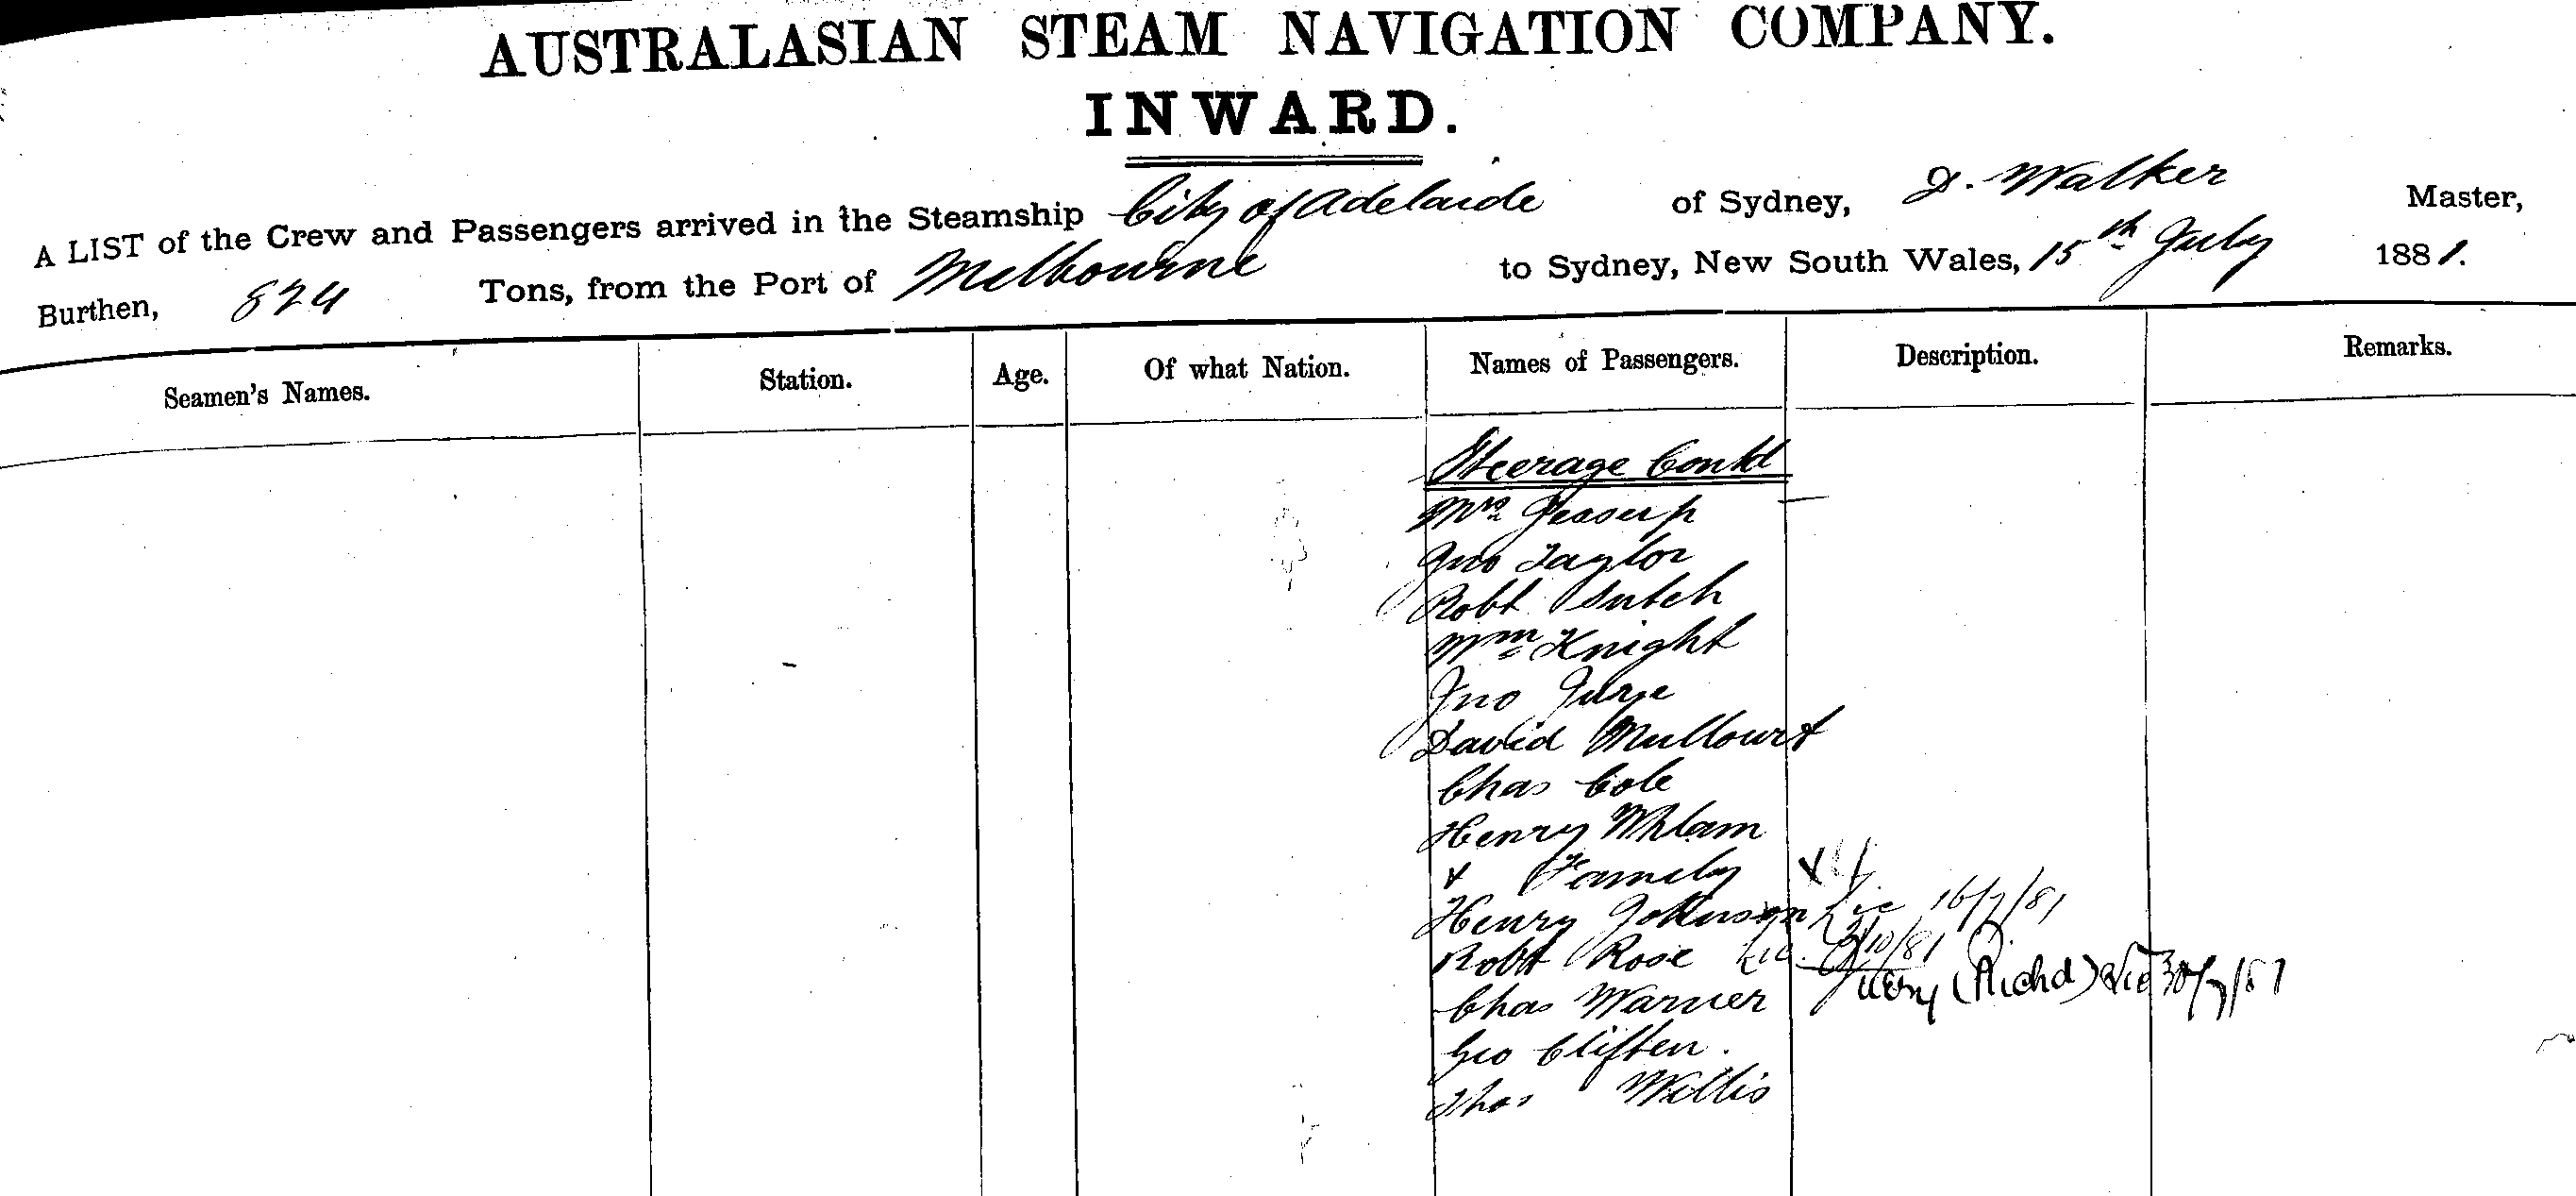 AUSTRALASIAN STEAM NAVIGATION COMPANY.
INWARD.
A LIST of the Crew and Passengers arrived in the Steamship City of Adelaide of Sydney, D. Walker Master,
Burthen, 824 Tons, from the Port of Melbourne to Sydney, New South Wales, 15th July 1881.
Seamen's Names. Station. Age. Of what Nation. Names of Passengers. Description. Remarks.
Steerage Contd
Mrs Jessup
Jno Taylor
Robt Sutch
Wm Knight
Jno
David
Chas Cole
Henry
& Family
Henry Johnson Lic 16/7/81
Robt Rose Lic. /10/81
Chas Warner (Richd) Lic 30/7/81
Geo Cliften.
Thos Willis